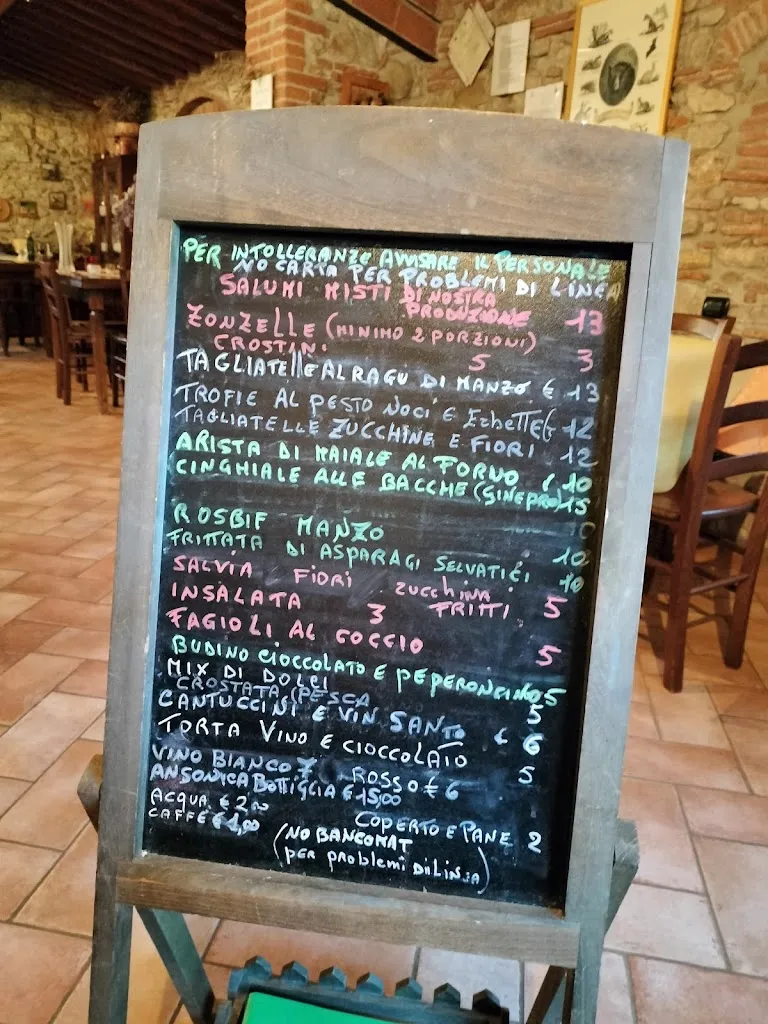 PER INTOLLERANZE AVVISARE IL PERSONALE
NO CARTA PER PROBLEMI DI LINEA
SALUMI MISTI DI NOSTRA
PRODUZIONE 13
ZONZELLE (MINIMO 2 PORZIONI) 3
CROSTINI 5
TAGLIATELLE AL RAGU DI MANZO € 13
TROFIE AL PESTO NOCI E ERbETTE € 12
TAGLIATELLE ZUCCHINE E FIORI 12
ARISTA DI MAIALE AL FORNO € 10
CINGHIALE ALLE BACCHE (GINEPRO) 15
ROSBIF MANZO 10
FRITTATA DI ASPARAGI SELVATICI 10
SALVIA FIORI ZUCCHINA
FRITTI 5
INSALATA 3
FAGIOLI AL COCCIO 5
BUDINO CIOCCOLATO E PEPERONCINO 5
MIX DI DOLCI 5
CROSTATA (PESCA
CANTUCCINI E VIN SANTO € 6
TORTA VINO E CIOCCOLATO 5
VINO BIANCO 7 ROSSO € 6
ANSONICA BOTTIGLIA € 15,00
ACQUA € 2,00
COPERTO E PANE 2
CAFFÈ € 1,00
(NO BANCOMAT
per problemi Di LINEA)